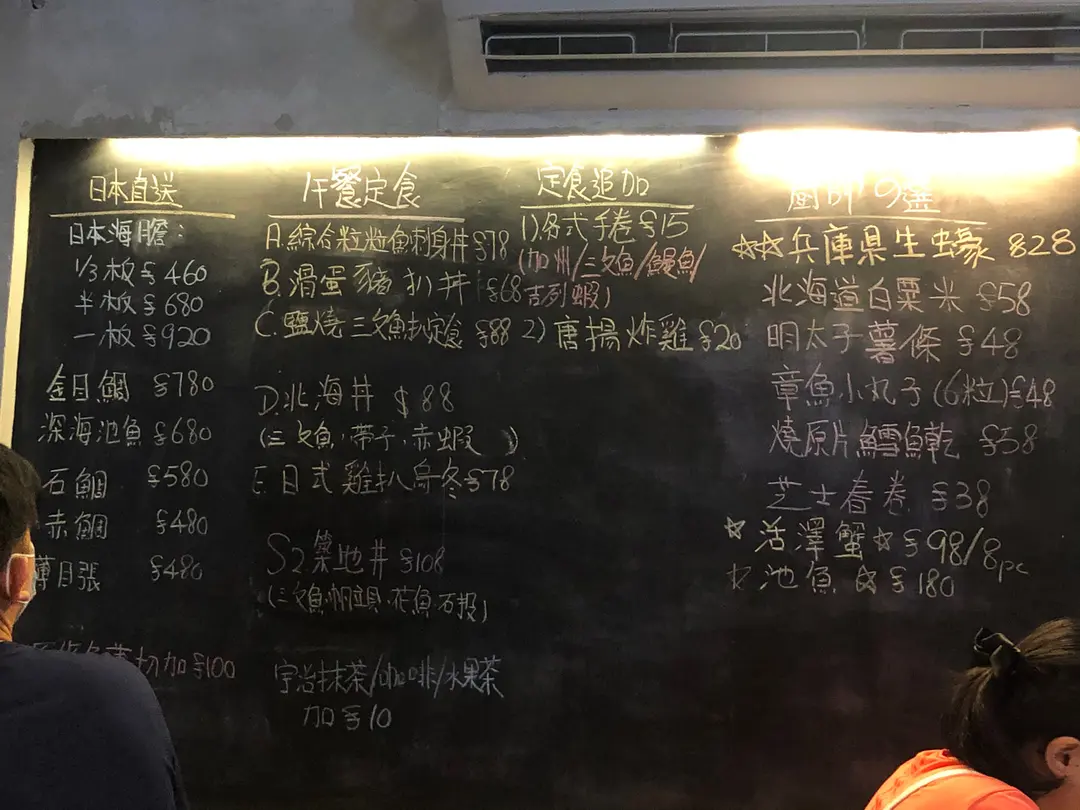 日本直送
日本海胆:
1/3板$460
半板$680
一板$920
金目鯛 $780
深海池魚$680
石鯛 $580
赤鯛 $480
薄目張 $480
切加$100
午餐定食
A.綜合粒粒魚刺身丼$78
B.滑蛋豬扒丼$68
C.鹽燒三文魚扒定食$88
D.北海丼 $88
(三文魚,帶子,赤蝦)
E.日式雞扒烏冬$78
S2築地丼$108
(三文魚,帆立貝,花魚,石投)
宇治抹茶/咖啡/水果茶
加$10
定食追加
1)各式手卷$15
(加州/三文魚/鰻魚/
吉列蝦)
2)唐揚炸雞$20
廚師
☆☆兵庫県生蠔 828
北海道白粟米 $58
明太子薯條 $48
章魚小丸子(6粒)$48
燒原片鱈魚乾 $58
芝士春卷 $38
☆活澤蟹☆$98/8pc
☆池魚☆$180